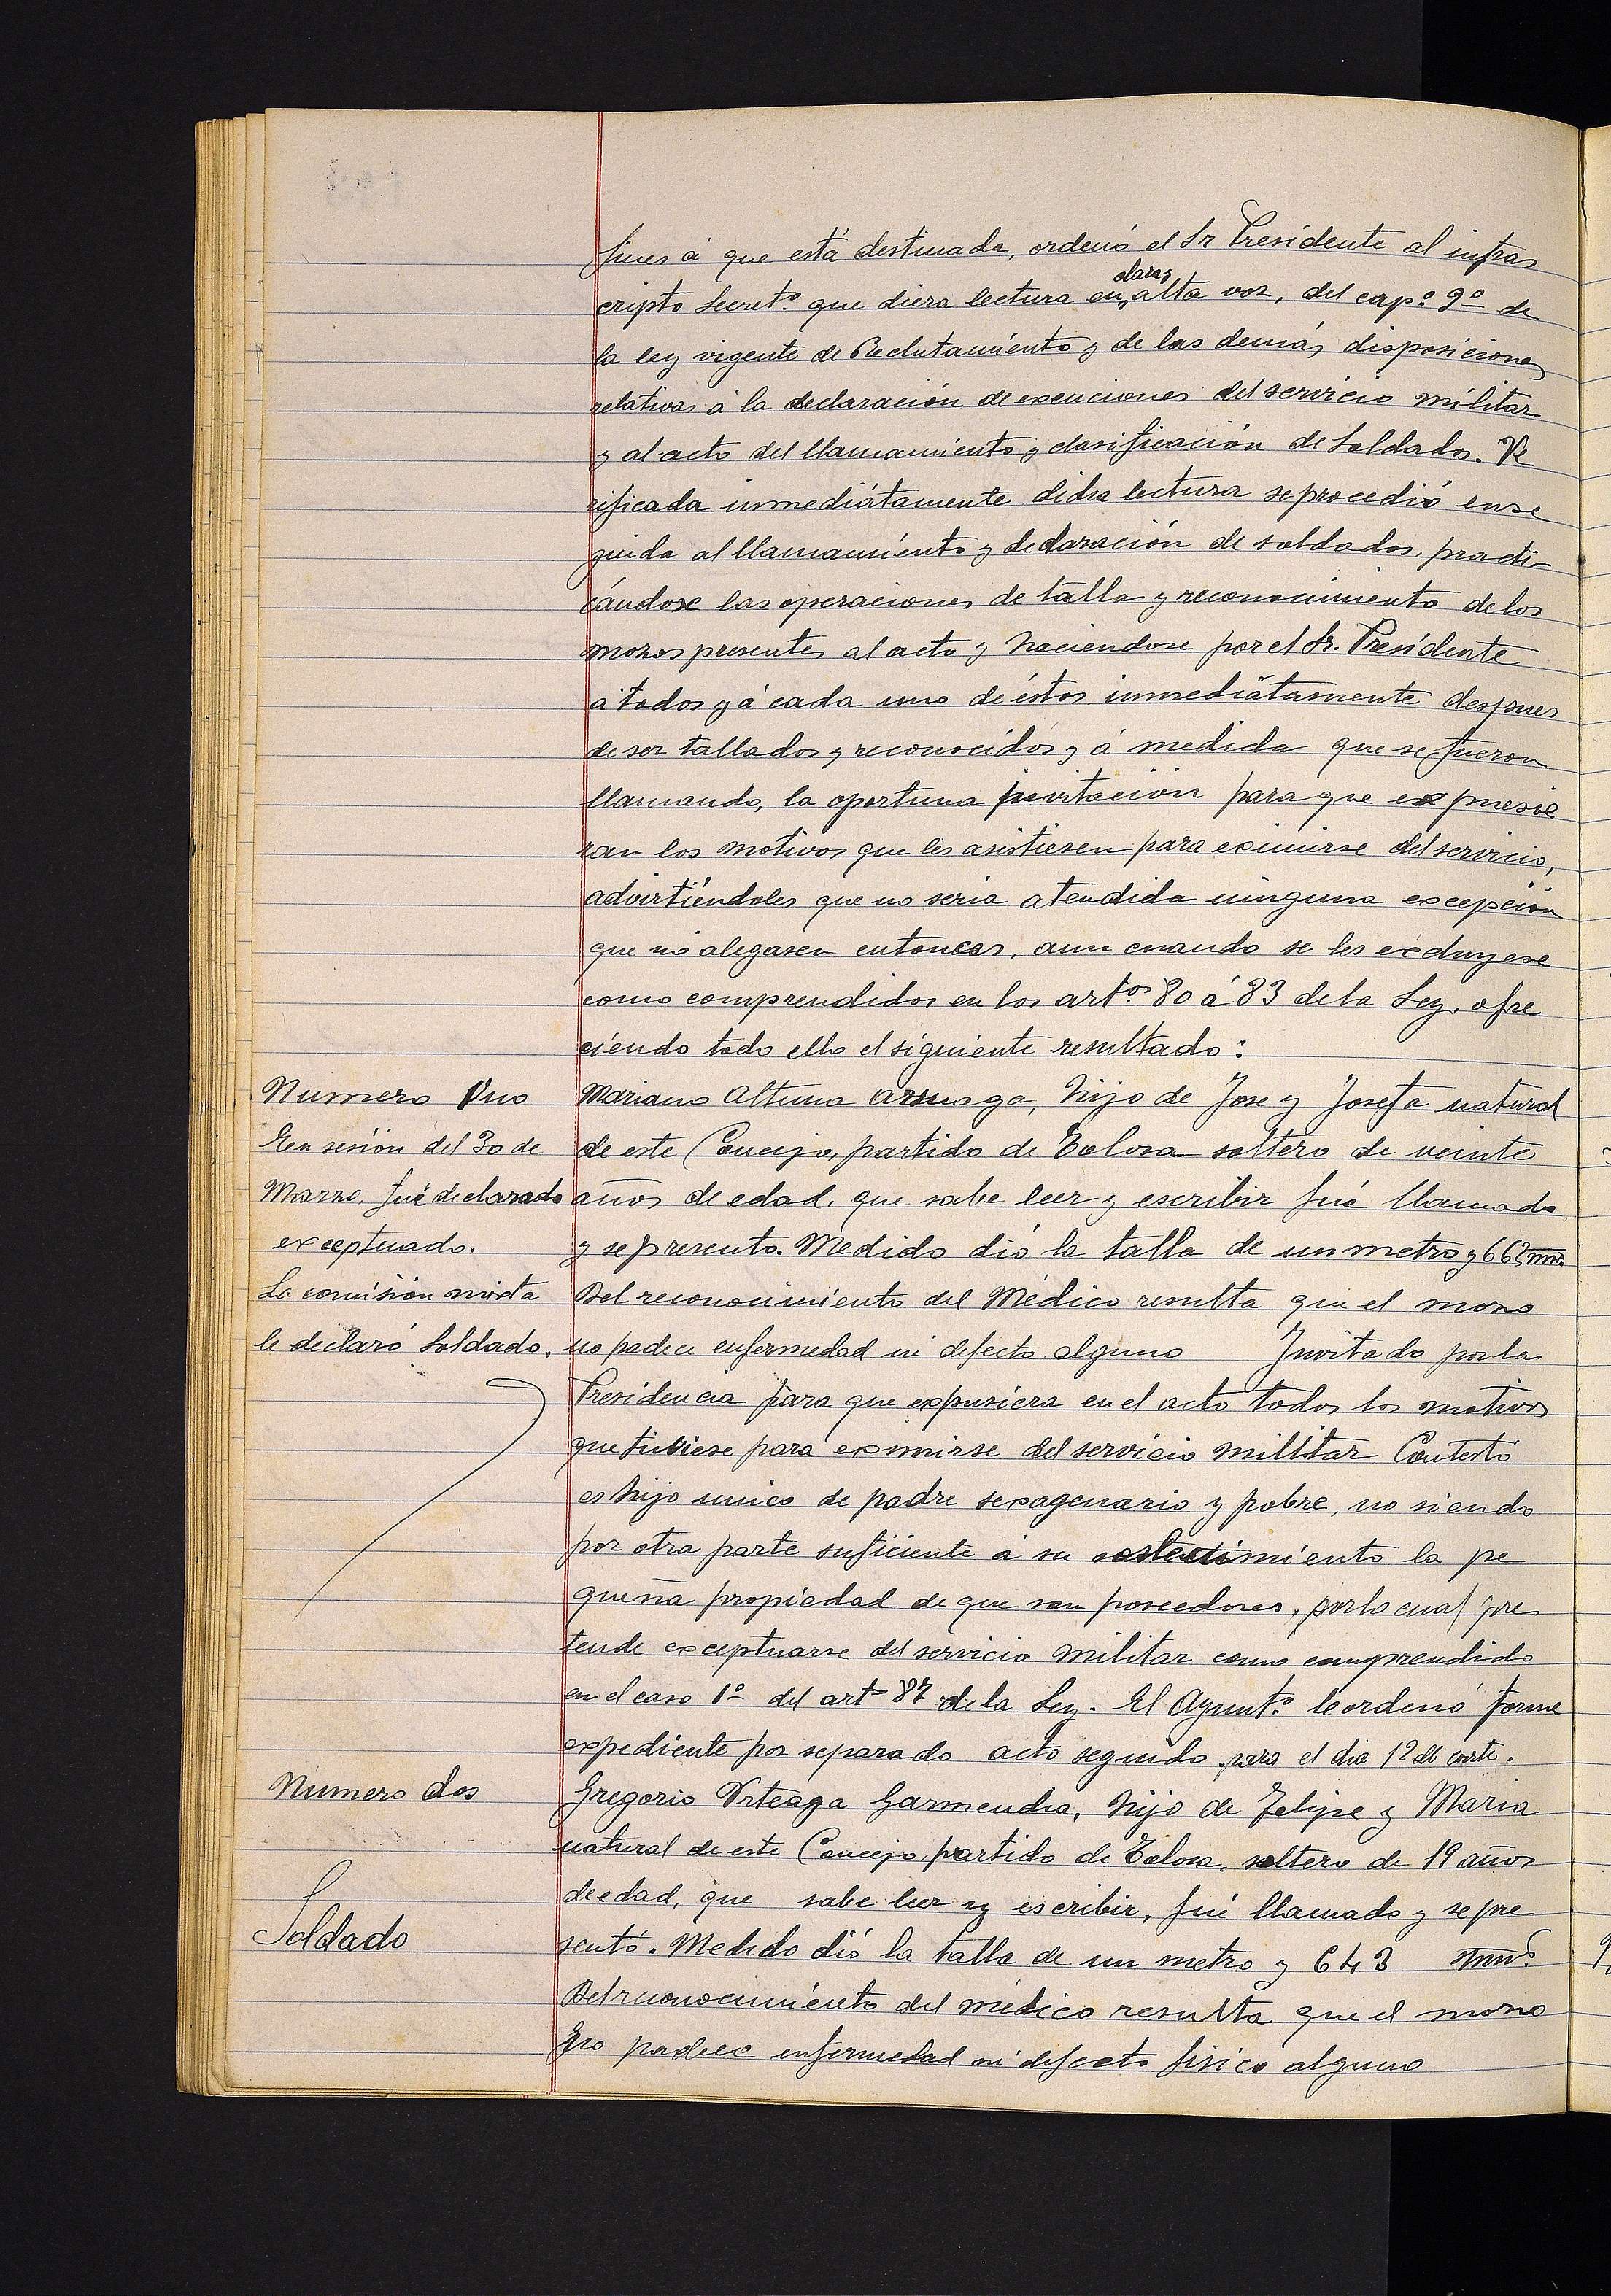 fines á que está destinada, ordenó el Sr Presidente al infras
cripto Secret.º que diera lectura en clara y alta voz, del cap.º 9º de
la ley vigente de Reclutamiento y de las demás disposiciones
relativas á la declaración de exenciones del servicio militar
y al acto del llamamiento y clasificación de Soldados. Ve
rificada inmediátamente dicha lectura se procedió ense
guida al llamamiento y declaración de soldados, practi-
cándose las operaciones de talla y reconocimiento de los
mozos presentes al acto y haciendose por el Sr. Presidente
á todos y á cada uno de éstos inmediátamente despues
de ser tallados y reconocidos y á medida que se fueron
llamando, la oportuna invitación para que expusie
ran los motivos que les asistiesen para eximirse del servicio,
advirtiéndoles que no seria atendida ninguna excepción
que no alegasen entonces, aun cuando se les excluyese
como comprendidos en los artºs 80 á 83 de la Ley, ofre
ciendo todo ello el siguiente resultado:
Numero Uno
Mariano Altuna Arsuaga, hijo de Jose y Josefa natural
En sesión del 30 de
de este Concejo, partido de Tolosa soltero de veinte
Marzo, fué declarado
años de edad, que sabe leer y escribir fué llamado
exceptuado.
y se presento. Medido dió la talla de un metro y 662 mm.
La comisión mixta
Del reconocimiento del Médico resulta que el mozo
le declaró Soldado.
no padece enfermedad ni defecto alguno Invitado por la
Presidencia para que expusiera en el acto todos los motivos
que tubiese para eximirse del servicio militar Contestó
es hijo unico de padre sexagenario y pobre, no siendo
por otra parte suficiente á su sostenimiento la pe
queña propiedad de que son poseedores, por lo cual pre
tende exceptuarse del servicio militar como comprendido
en el caso 1º del art 87 de la Ley. El Ayunt.º le ordenó forme
expediente por separado acto seguido para el dia 12 del corte.
Numero dos
Gregorio Urteaga Garmendia, hijo de Felipe y Maria
natural de este Concejo, partido de Tolosa, soltero de 19 años
de edad, que sabe leer y escribir, fué llamado y se pre
Soldado
sentó. Medido dió la talla de un metro y 643 mms.
Del reconocimiento del médico resulta que el mozo
no padece enfermedad ni defecto fisico alguno